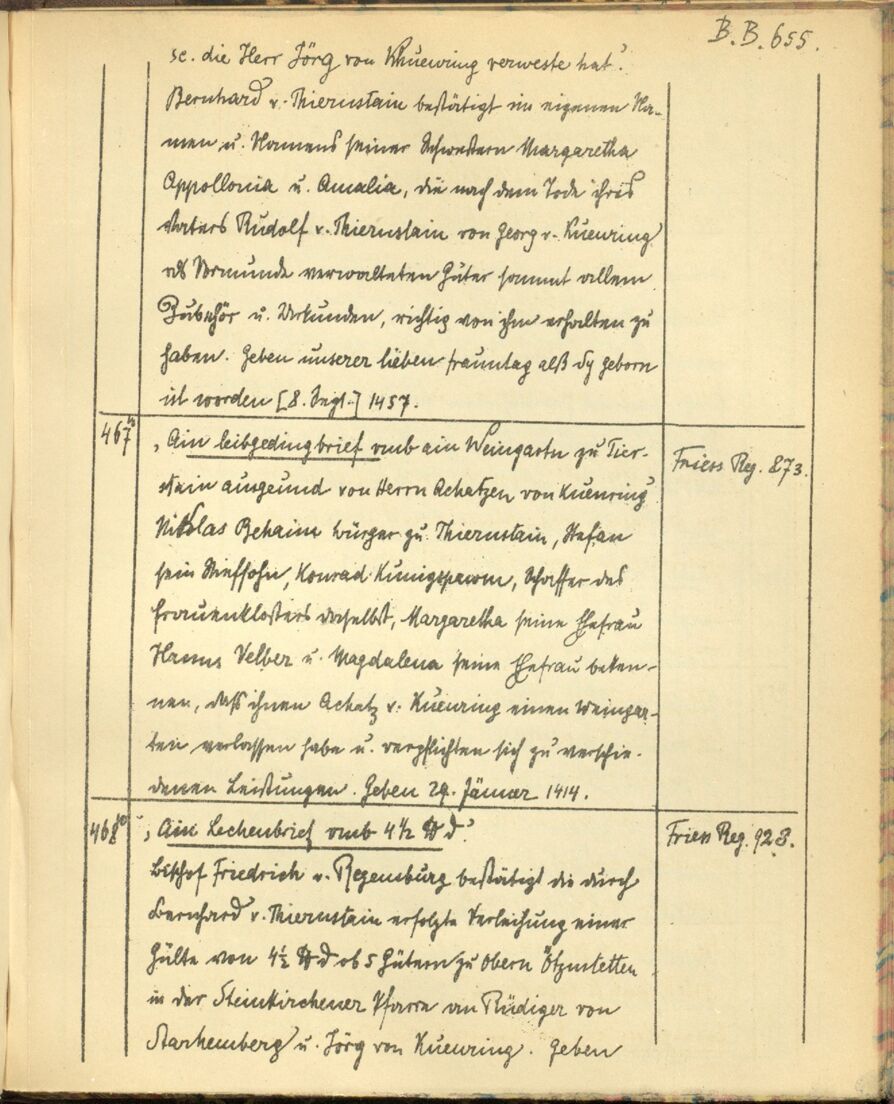 B. B. 655.
sc. die Herr Jörg von Khuenring verweste hat.'
Bernhard v. Thiernstain bestätigt im eigenen Na-
men u. Namens seiner Schwestern Margaretha
Appollonia u. Amalia, die nach dem Tode ihres
Vaters Rudolf v. Thiernstain von Georg v. Kuenring
als Vormunde verwalteten Güter sammt allem
Zubehör u. Urkunden, richtig von ihm erhalten zu
haben. Geben unserer lieben frauntag alß dy geborn
ist worden [8. Sept.] 1457.
467
„Ain leibgedingbrief umb ain Weingartn zu Tier-
stain ausgeund von Herrn Achatzen von Kuenring"
Friess Reg. 873.
Nikolas Behaim bürger zu Thiernstain, Stefan
sein Stiefsohn, Konrad Künigspaum, Schaffer des
Frauenklosters daselbst, Margaretha seine Ehefrau
Hanns Velber u. Magdalena seine Ehefrau beken-
nen, daß ihnen Achatz v. Kuenring einen Weingar-
ten verlassen habe u. verpflichten sich zu verschie-
denen Leistungen. Geben 29. Jänner 1414.
468
„Ain Lechenbrief umb 4½ ℔ d."
Friess Reg. 923.
Bischof Friedrich v. Regensburg bestätigt die durch
Bernhard v. Thiernstain erfolgte Verleihung einer
Gülte von 4½ ℔ d ob 5 Gütern zu Obern Ötzustetten
in der Steinkirchener Pfarre an Rüdiger von
Starhemberg u. Jörg von Kuenring. Geben